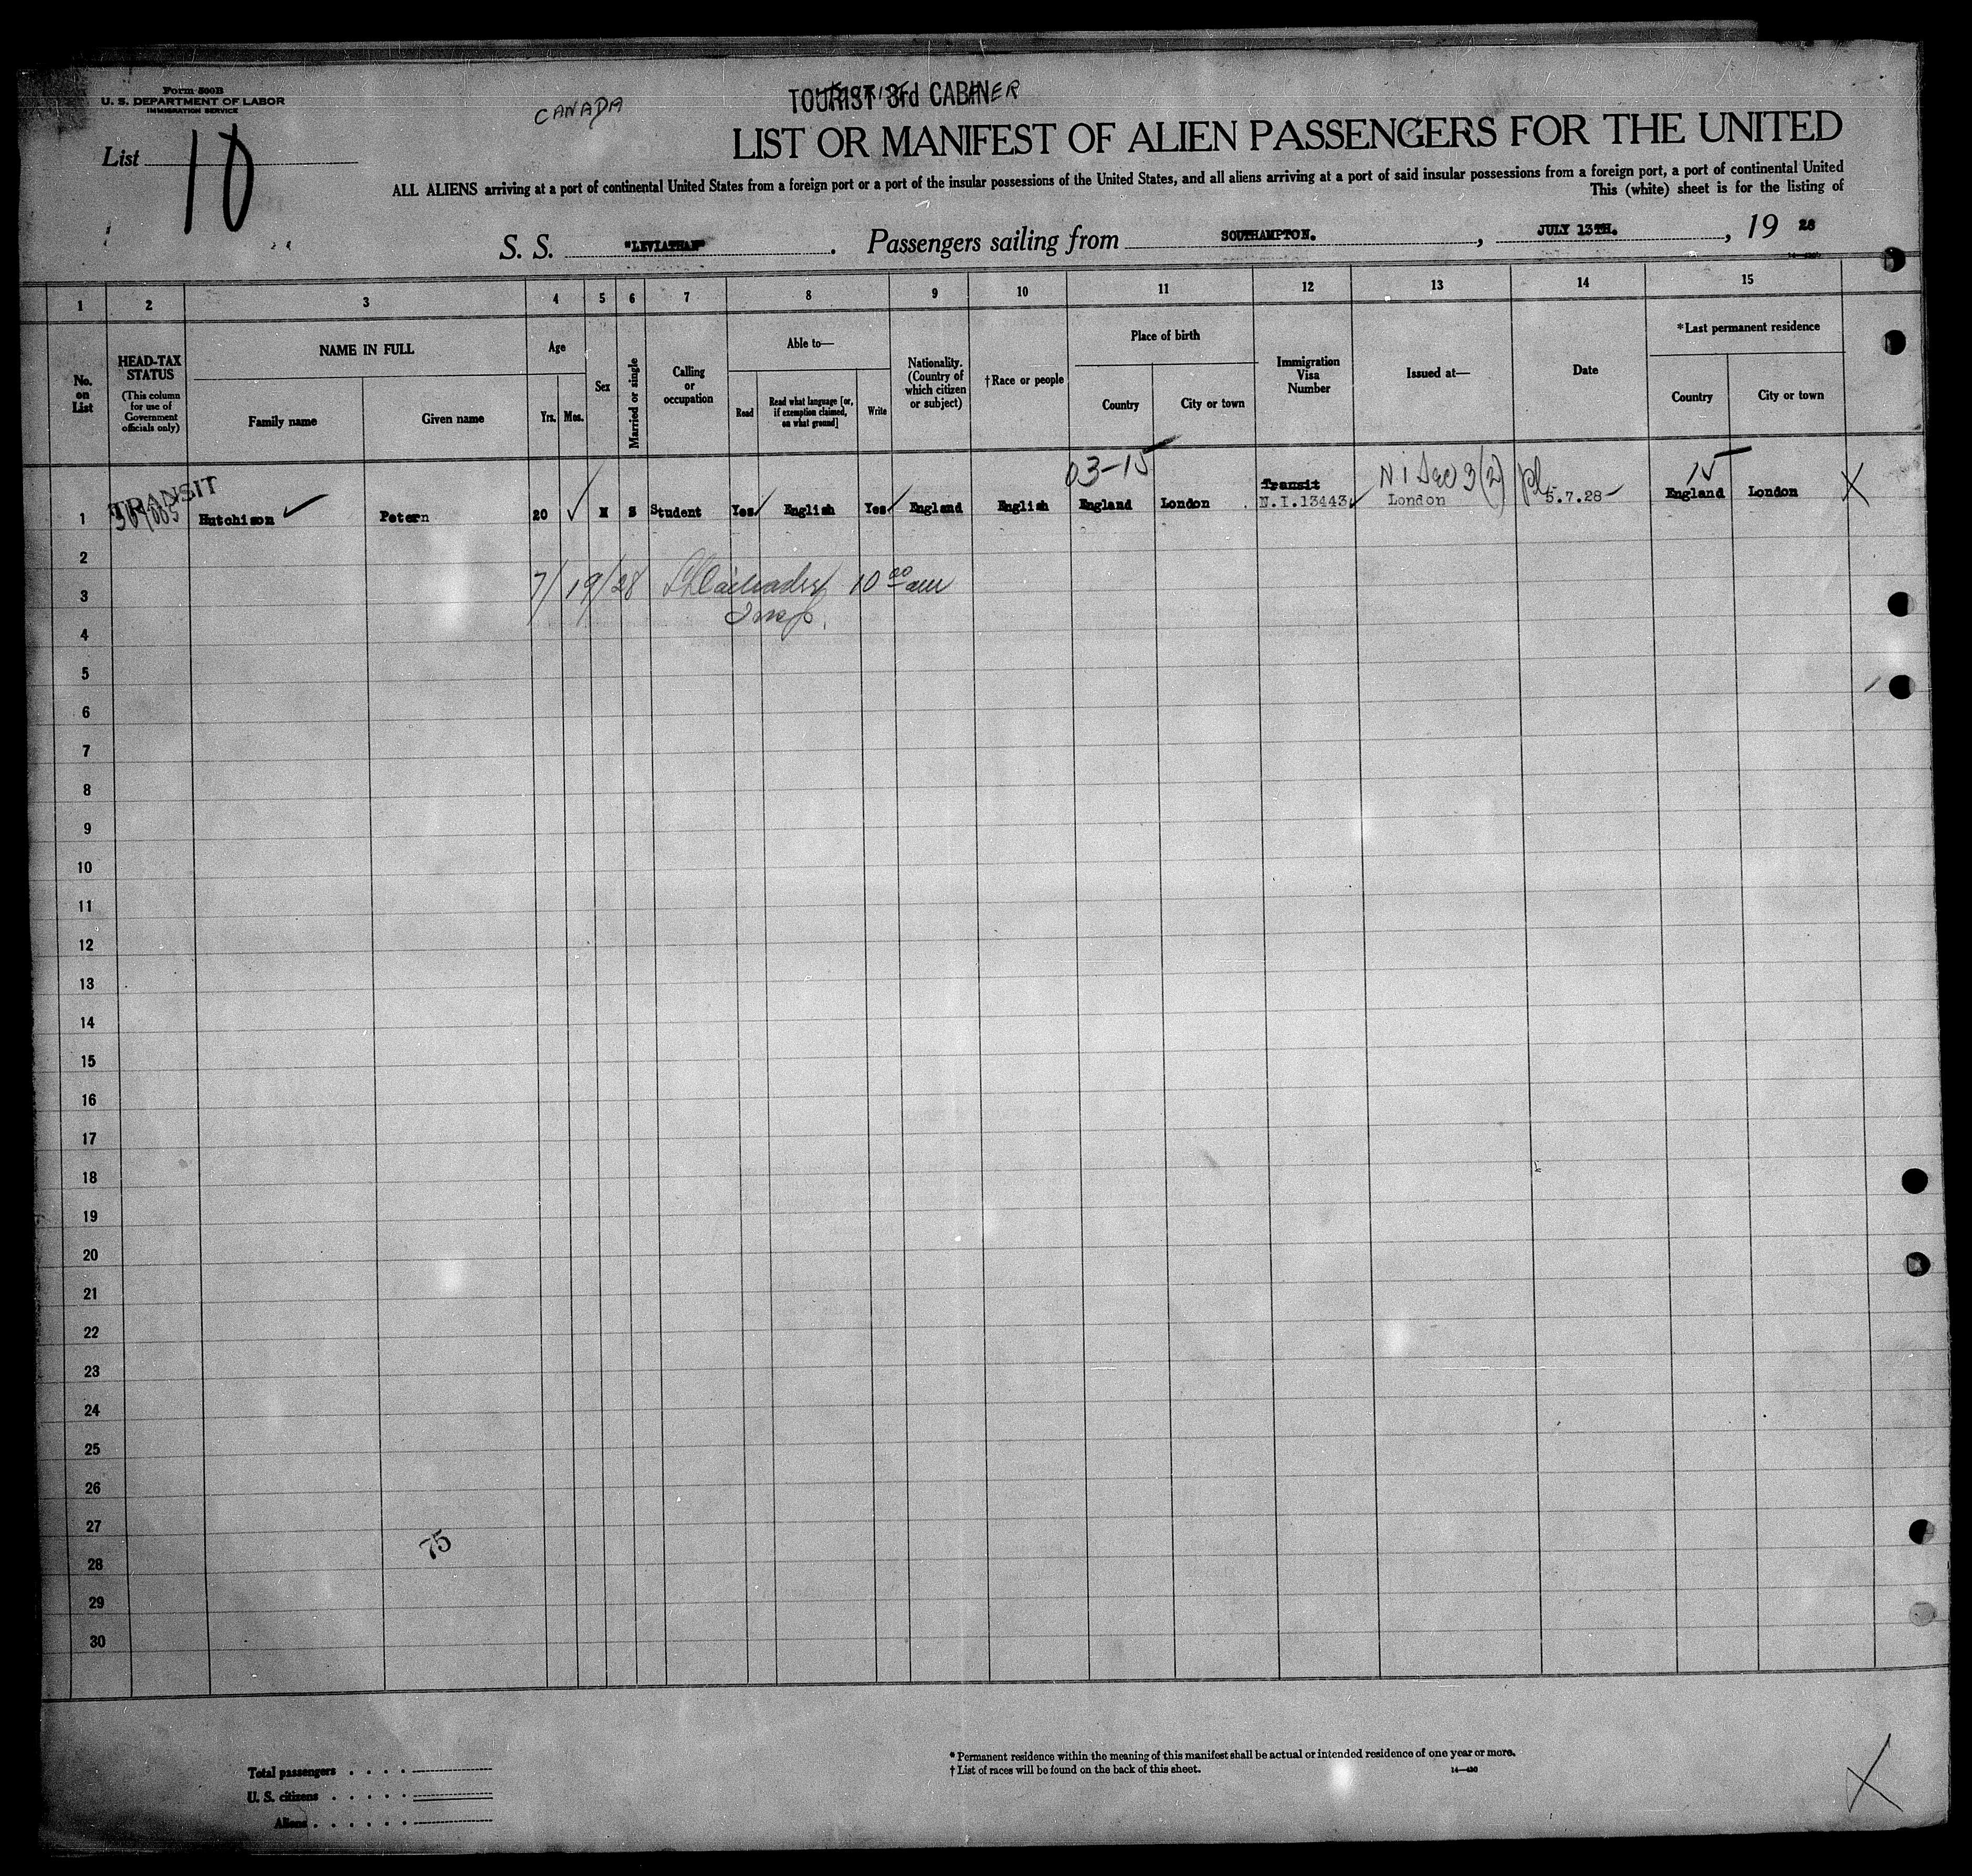 Form 500B
U. S. DEPARTMENT OF LABOR
IMMIGRATION SERVICE
CANADA
TOURIST 3rd CABIN
List 10
LIST OR MANIFEST OF ALIEN PASSENGERS FOR THE UNITED
ALL ALIENS arriving at a port of continental United States from a foreign port or a port of the insular possessions of the United States, and all aliens arriving at a port of said insular possessions from a foreign port, a port of continental United
This (white) sheet is for the listing of
S. S. "LEVIATHAN". Passengers sailing from SOUTHAMPTON., JULY 13TH., 19 28
1 2 3 4 5 6 7 8 9 10 11 12 13 14 15
No. on List
HEAD-TAX STATUS
(This column for use of Government officials only)
NAME IN FULL
Family name
Given name
Age
Yrs. Mos.
Sex
Married or single
Calling or occupation
Able to—
Read
Read what language [or, if exemption claimed, on what ground]
Write
Nationality. (Country of which citizen or subject)
†Race or people
Place of birth
Country
City or town
Immigration Visa Number
Issued at—
Date
*Last permanent residence
Country
City or town
03-15
N.I Sec 3(2)
15
TRANSIT
Transit
1 Hutchison Peter 20 M S Student Yes English Yes England English England London N.I.13443 London 5.7.28 England London X
2
7/19/28 10 00 am
3
Insp.
4
5
6
7
8
9
10
11
12
13
14
15
16
17
18
19
20
21
22
23
24
25
26
27
75
28
29
30
* Permanent residence within the meaning of this manifest shall be actual or intended residence of one year or more.
† List of races will be found on the back of this sheet.
14—430
Total passengers
U. S. citizens
Aliens
X